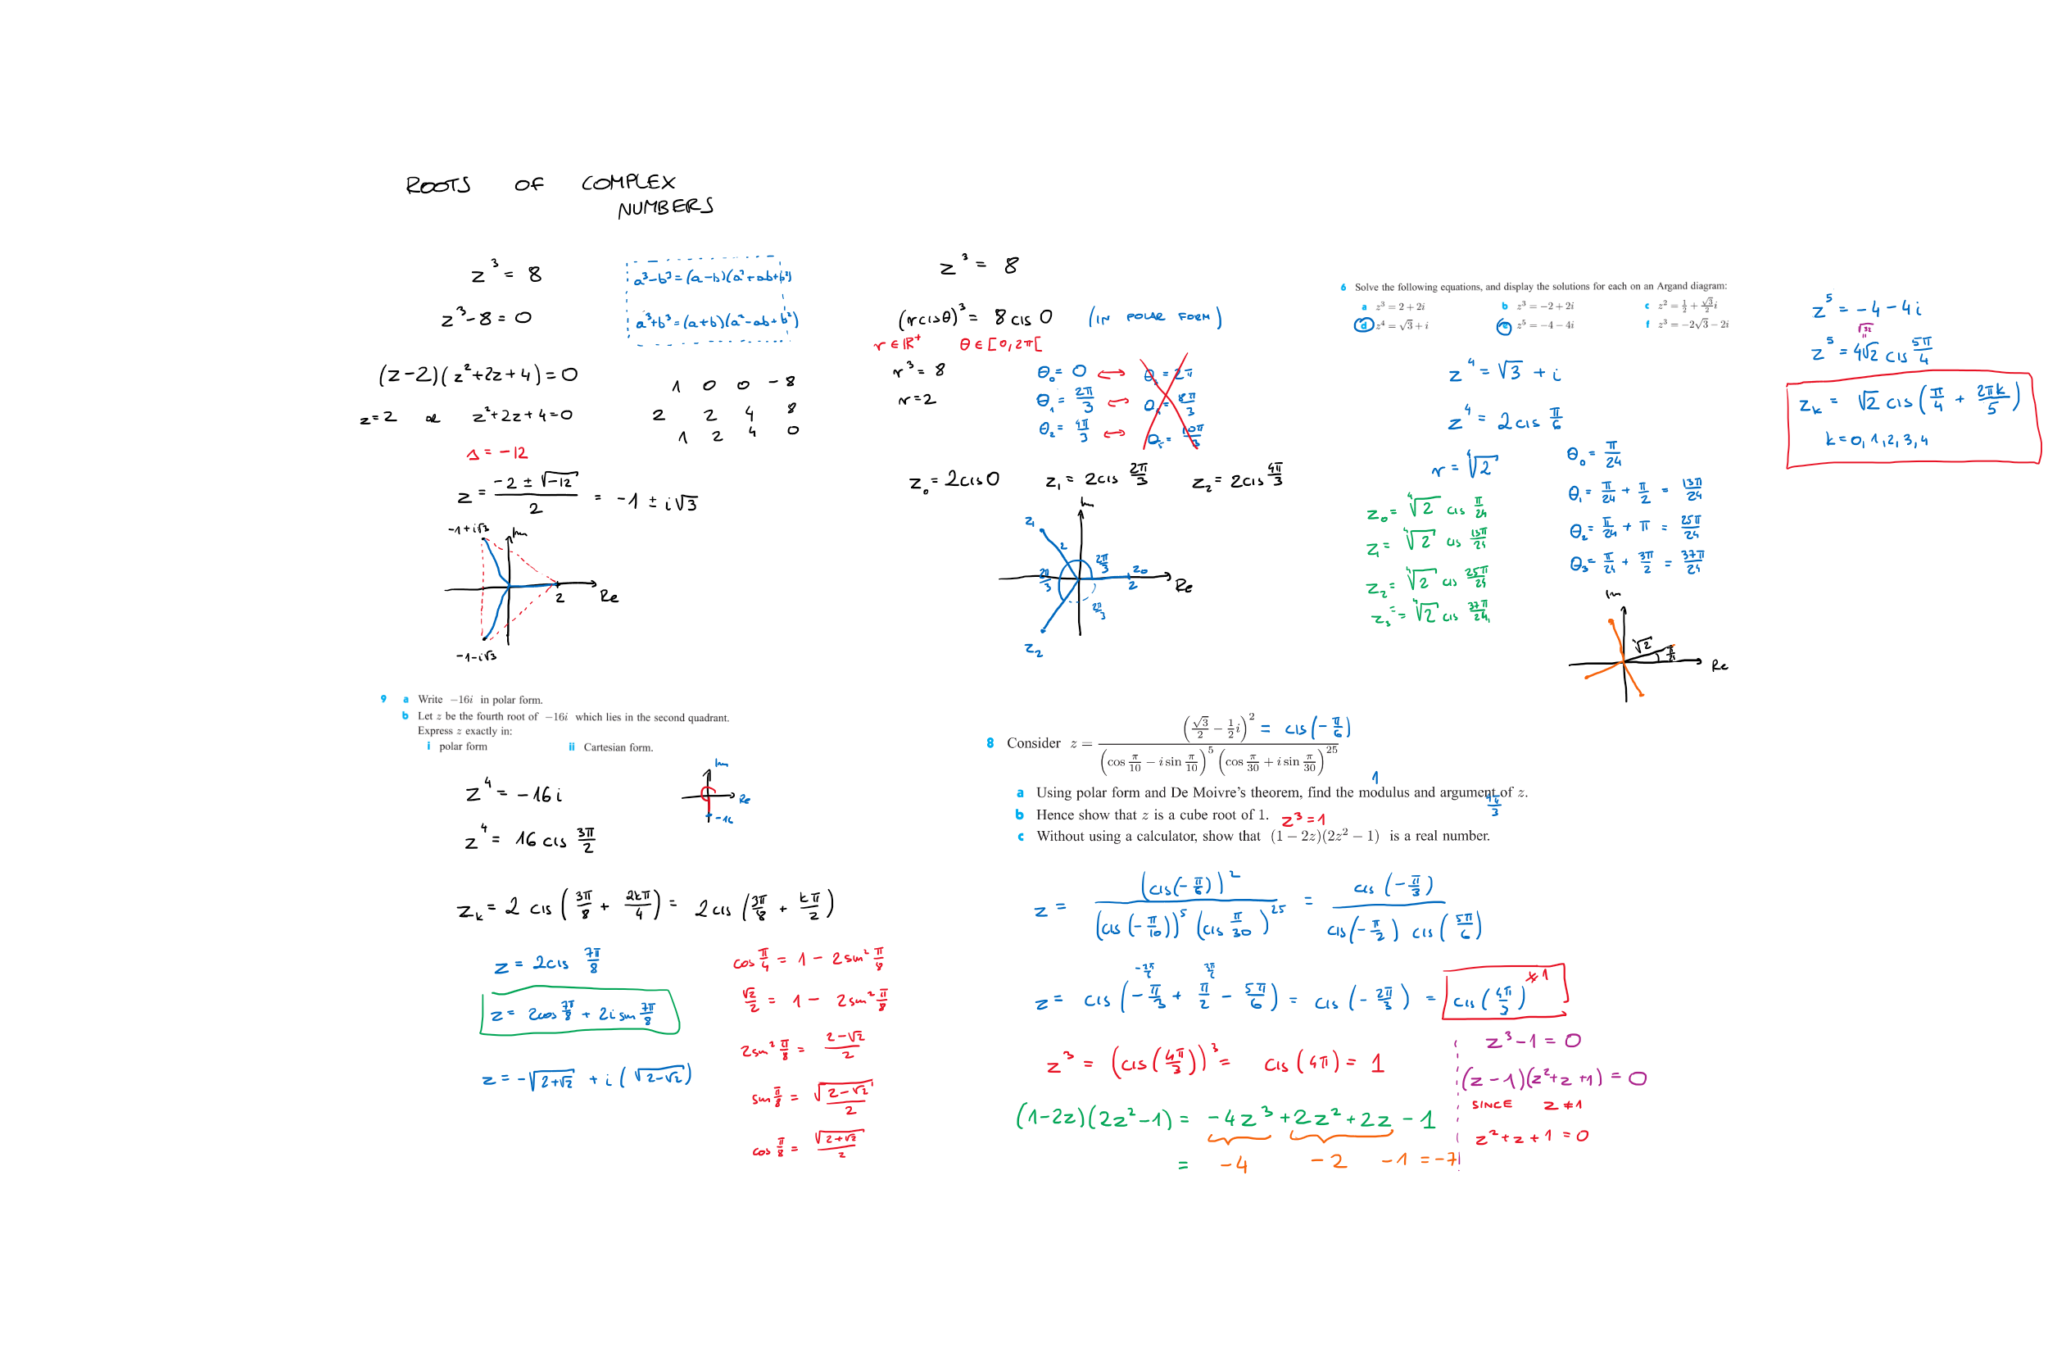 ROOTS OF COMPLEX
NUMBERS
z³ = 8
z³ - 8 = 0
(z-2)(z²+2z+4) = 0
z=2 or z²+2z+4=0
Δ = -12
z = (-2 ± √-12)/2 = -1 ± i√3
a³-b³ = (a-b)(a²+ab+b²)
a³+b³ = (a+b)(a²-ab+b²)
1 0 0 -8
2 2 4 8
1 2 4 0
-1+i√3
Im
2
Re
-1-i√3
z³ = 8
(r cis θ)³ = 8 cis 0 (IN POLAR FORM)
r ∈ ℝ⁺ θ ∈ [0, 2π[
r³ = 8
r = 2
θ₀ = 0 ↔ θ₃ = 2π
θ₁ = 2π/3 ↔ θ₄ = 8π/3
θ₂ = 4π/3 ↔ θ₅ = 10π/3
z₀ = 2cis0 z₁ = 2cis 2π/3 z₂ = 2cis 4π/3
Im
z₁
2
2π/3
2π/3
z₀
2
Re
2π/3
z₂
6 Solve the following equations, and display the solutions for each on an Argand diagram:
a z³ = 2 + 2i b z³ = -2 + 2i c z² = 1/2 + √3/2 i
d z⁴ = √3 + i e z⁵ = -4 - 4i f z³ = -2√3 - 2i
z⁴ = √3 + i
z⁴ = 2cis π/6
r = ⁴√2
θ₀ = π/24
θ₁ = π/24 + π/2 = 13π/24
θ₂ = π/24 + π = 25π/24
θ₃ = π/24 + 3π/2 = 37π/24
z₀ = ⁴√2 cis π/24
z₁ = ⁴√2 cis 13π/24
z₂ = ⁴√2 cis 25π/24
z₃ = ⁴√2 cis 37π/24
Im
⁴√2
π/24
Re
z⁵ = -4 - 4i
√32
z⁵ = 4√2 cis 5π/4
z_k = √2 cis(π/4 + 2πk/5)
k = 0, 1, 2, 3, 4
9 a Write -16i in polar form.
b Let z be the fourth root of -16i which lies in the second quadrant.
Express z exactly in:
i polar form ii Cartesian form.
Im
Re
-16
z⁴ = -16i
z⁴ = 16 cis 3π/2
z_k = 2 cis(3π/8 + 2kπ/4) = 2cis(3π/8 + kπ/2)
z = 2cis 7π/8
z = 2cos 7π/8 + 2i sin 7π/8
z = -√(2+√2) + i(√(2-√2))
cos π/4 = 1 - 2sin² π/8
√2/2 = 1 - 2sin² π/8
2sin² π/8 = (2-√2)/2
sin π/8 = √(2-√2)/2
cos π/8 = √(2+√2)/2
8 Consider z = (√3/2 - 1/2 i)² / ((cos π/10 - i sin π/10)⁵ (cos π/30 + i sin π/30)²⁵)
= cis(-π/6)
1
a Using polar form and De Moivre's theorem, find the modulus and argument of z.
4π/3
b Hence show that z is a cube root of 1. z³=1
c Without using a calculator, show that (1 - 2z)(2z² - 1) is a real number.
z = (cis(-π/6))² / ((cis(-π/10))⁵ (cis π/30)²⁵) = cis(-π/3) / (cis(-π/2) cis(5π/6))
z = cis(-π/3 + π/2 - 5π/6) = cis(-2π/3) = cis(4π/3) ≠1
z³ = (cis(4π/3))³ = cis(4π) = 1
(1-2z)(2z²-1) = -4z³ + 2z² + 2z - 1
= -4 -2 -1 = -7
z³ - 1 = 0
(z-1)(z²+z+1) = 0
SINCE z ≠ 1
z² + z + 1 = 0